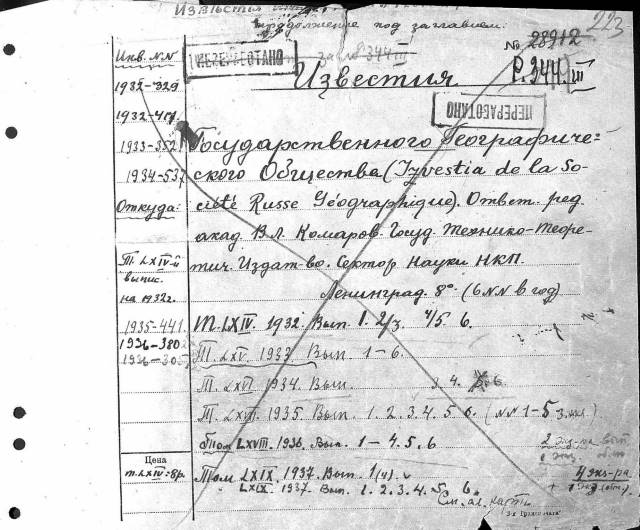 Известия
продолжение под заглавием:
223
Инв. NN
ПЕРЕРАБОТАНО
№ 28912
Р.344 III
Известия
ПЕРЕРАБОТАНО
1932-329
1932-401
1933-352
1934-537
Государственного Географиче=
ского Общества (Izvestia de la So-
Откуда:
ciété Russe Géographique). Ответ. ред.
акад. В л. Комаров. Госуд. Технико-Теоре-
Т. LXIV-й
выпис.
на 1932г.
тич. Издат-во. Сектор Науки НКП.
Ленинград. 8° (6 NN в год)
1935-441.
Т. LXIV. 1932. Вып. 1. 2/3. 4/5. 6.
1936-380
1936-305
Т. LXV. 1933. Вып. 1-6.
Т. LXVI. 1934. Вып. 3. 4. 6
Т. LXVII. 1935. Вып. 1. 2. 3. 4. 5. 6. (NN 1-5 3 экз.)
Том LXVIII. 1936. Вып. 1-4. 5. 6
Цена
т. LXIV: 8р.
Том LXIX. 1937. Вып. 1(4)
4 экз-ра
LXIX. 1937. Вып. 1. 2. 3. 4. 5. 6.
См. ал. карт.